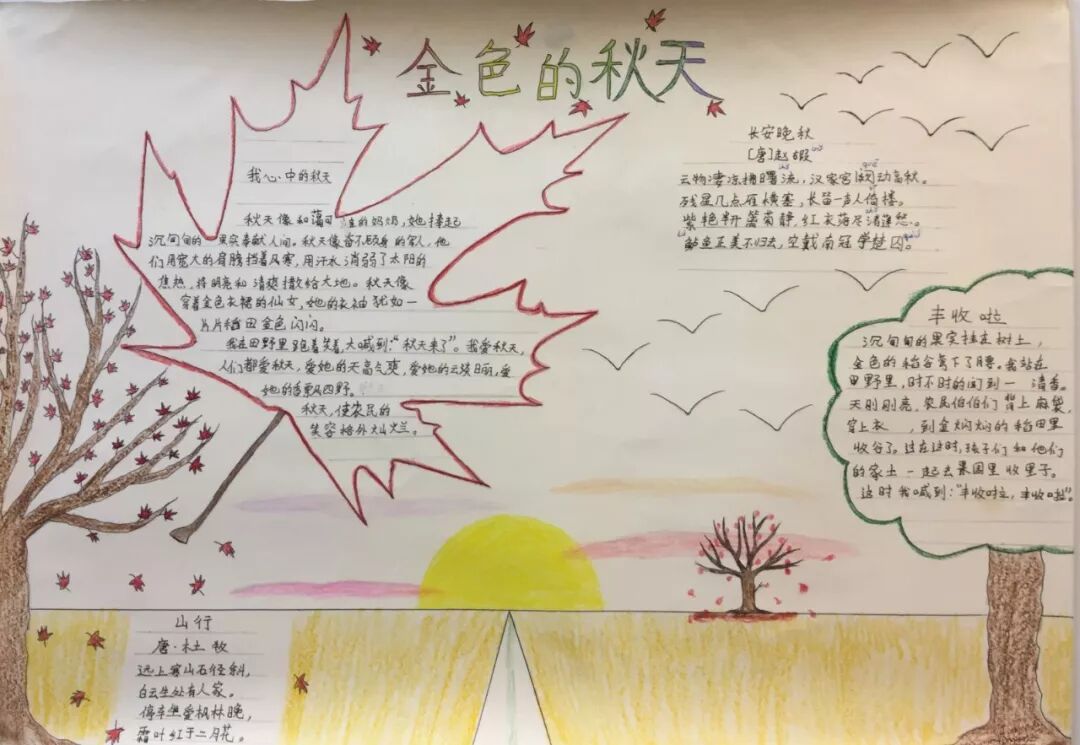 金色的秋天
我心中的秋天
秋天像和蔼可 的妈妈,她捧起
沉甸甸的 果实奉献人间。秋天像奋不顾身 的军人,他
们用宽大的肩膀挡着风寒,用汗水消弱了太阳的
焦热,将明亮和清爽撒给大地。秋天像
穿着金色衣裙的仙女,她的衣袖 犹如一
片片稻田金色闪闪。
我在田野里跑着笑着,大喊到:“秋天来了”。我爱秋天,
人们都爱秋天,爱她的天高气爽,爱她的云淡日丽,爱
她的香飘四野。
秋天,使农民的
笑容格外灿烂。
长安晚秋
[唐]赵嘏
云物凄凉拂曙流,汉家宫阙动高秋。
残星几点雁横塞,长笛一声人倚楼。
紫艳半开篱菊静,红衣落尽渚莲愁。
鲈鱼正美不归去,空戴南冠学楚囚。
丰收啦
沉甸甸的果实挂在树上,
金色的稻谷弯下了腰。我站在
田野里,时不时的闻到一 清香。
天刚刚亮,农民伯伯们背上麻袋,
穿上衣 ,到金焖焖的稻田里
收谷了。过在这时,孩子们和他们
的家土一起去果园里收里子。
这时我喊到:“丰收啦,丰收啦”。
山行
唐·杜牧
远上寒山石径斜,
白云生处有人家。
停车坐爱枫林晚,
霜叶红于二月花。